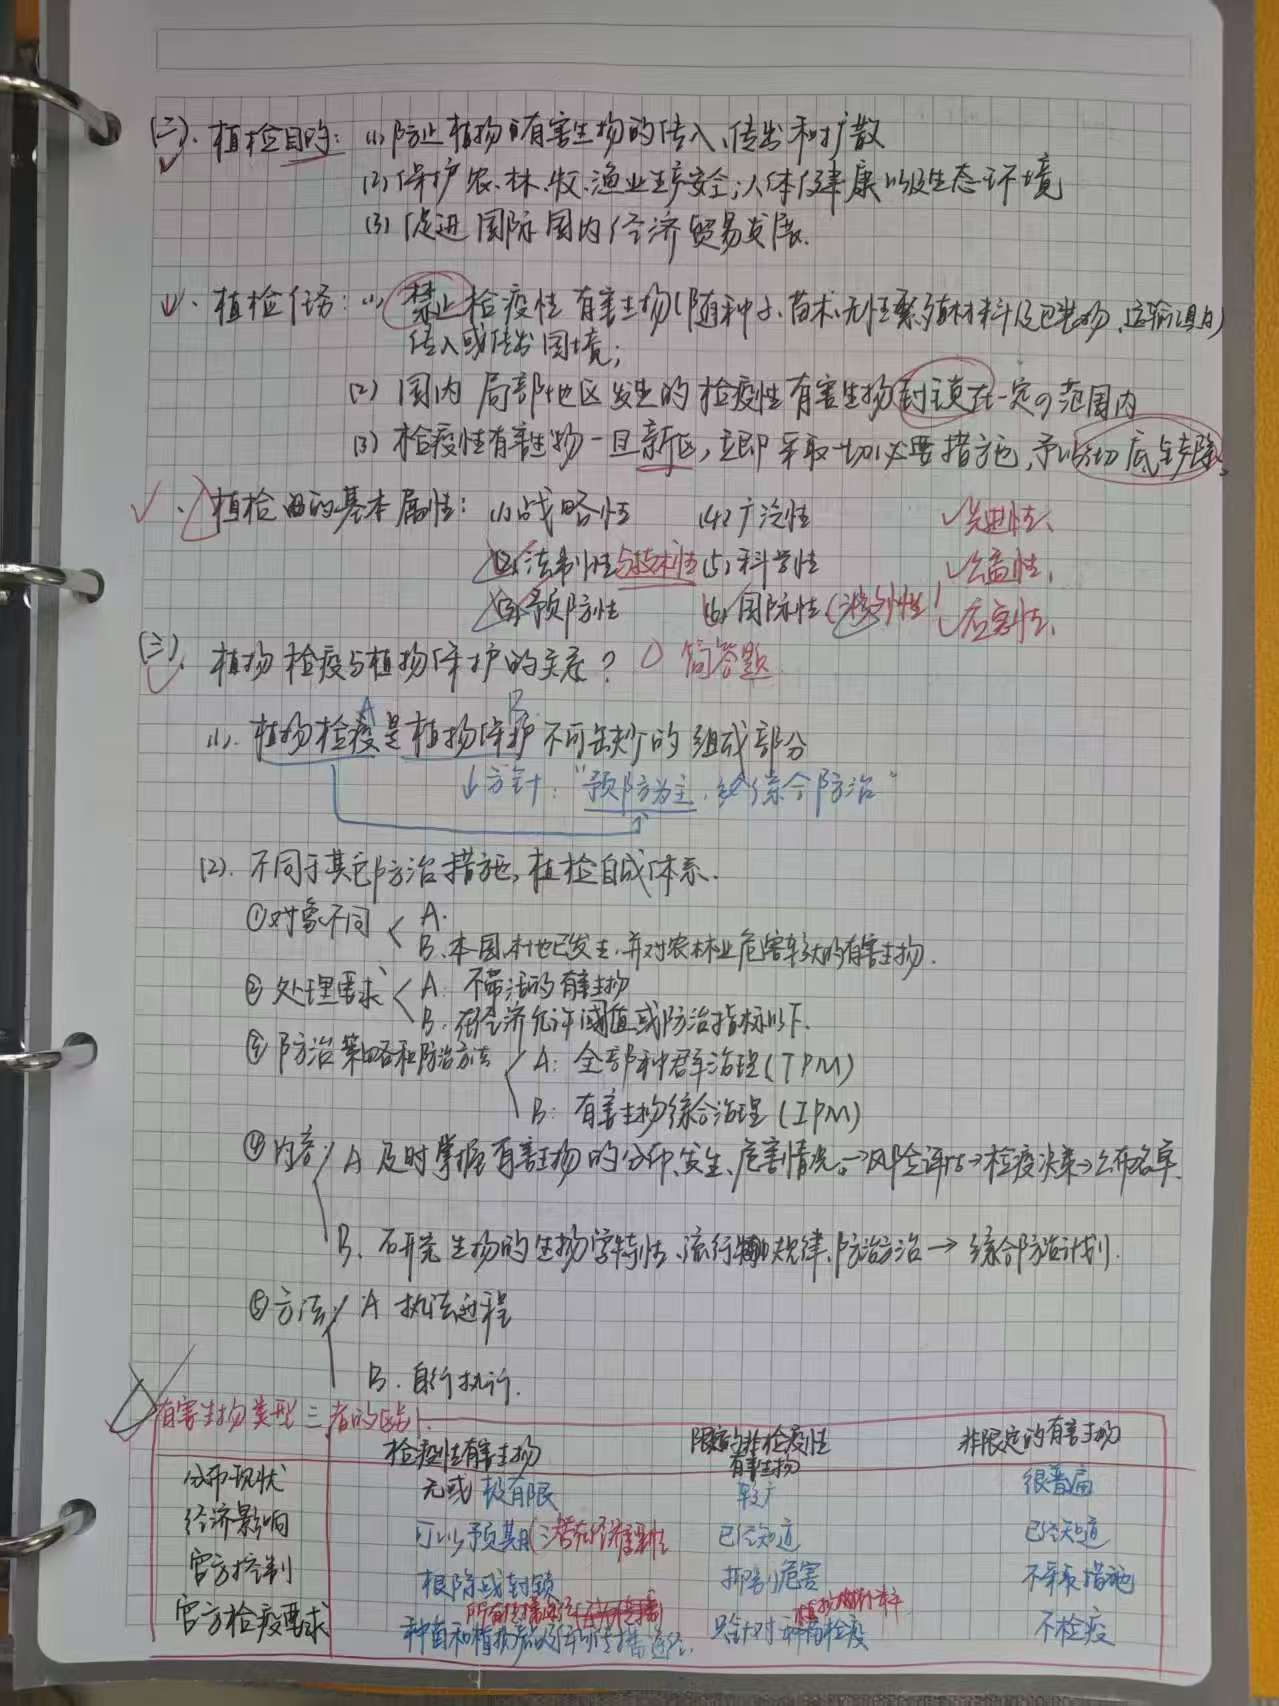 (二). 植检目的: (1) 防止植物有害生物的传入、传出和扩散
(2) 保护农、林、牧、渔业生产安全; 人体健康以及生态环境
(3) 促进国际国内经济贸易发展.
植检任务: (1) 禁止检疫性有害生物(随种子、苗木、无性繁殖材料及包装物、运输工具)
传入或传出国境;
(2) 国内局部地区发生的检疫性有害生物封锁在一定范围内
(3) 检疫性有害生物一旦新区, 立即采取一切必要措施, 予以彻底铲除
植检的基本属性: (1) 战略性 (4) 广泛性 ✓ 先进性、
(2) 法制性与技术性 (5) 科学性 ✓ 公益性、
(3) 预防性 (6) 国际性 ✓
(三). 植物检疫与植物保护的关系? 简答题
A B
(1). 植物检疫是植物保护不可缺少的组成部分
↓ 方针: "预防为主, 综合防治"
(2). 不同于其它防治措施, 植检自成体系.
①对象不同 A.
B. 本国本地已发生, 并对农林业危害较大的有害生物.
② 处理要求 A. 不带活的有害生物
B. 在经济允许阈值或防治指标以下.
③ 防治策略和防治方法 A: 全部种群治理(TPM)
B: 有害生物综合治理(IPM)
④ 内容 A 及时掌握有害生物的分布、发生、危害情况。→风险评估→检疫决策→公布名单.
B. 研究生物的生物学特性、流行规律、防治方法 → 综合防治计划.
⑤ 方法 A 执法过程
B. 自行执行.
有害生物类型三者的区别.
检疫性有害生物 限定的非检疫性 非限定的有害生物
有害生物
分布现状 无或极有限 较广 很普遍
经济影响 可以预期(潜在经济重要性 已经知道 已经知道
官方控制 根除或封锁 抑制危害 不采取措施
官方检疫要求 种苗和植物产品及 传播途径. 只针对种苗检疫 不检疫